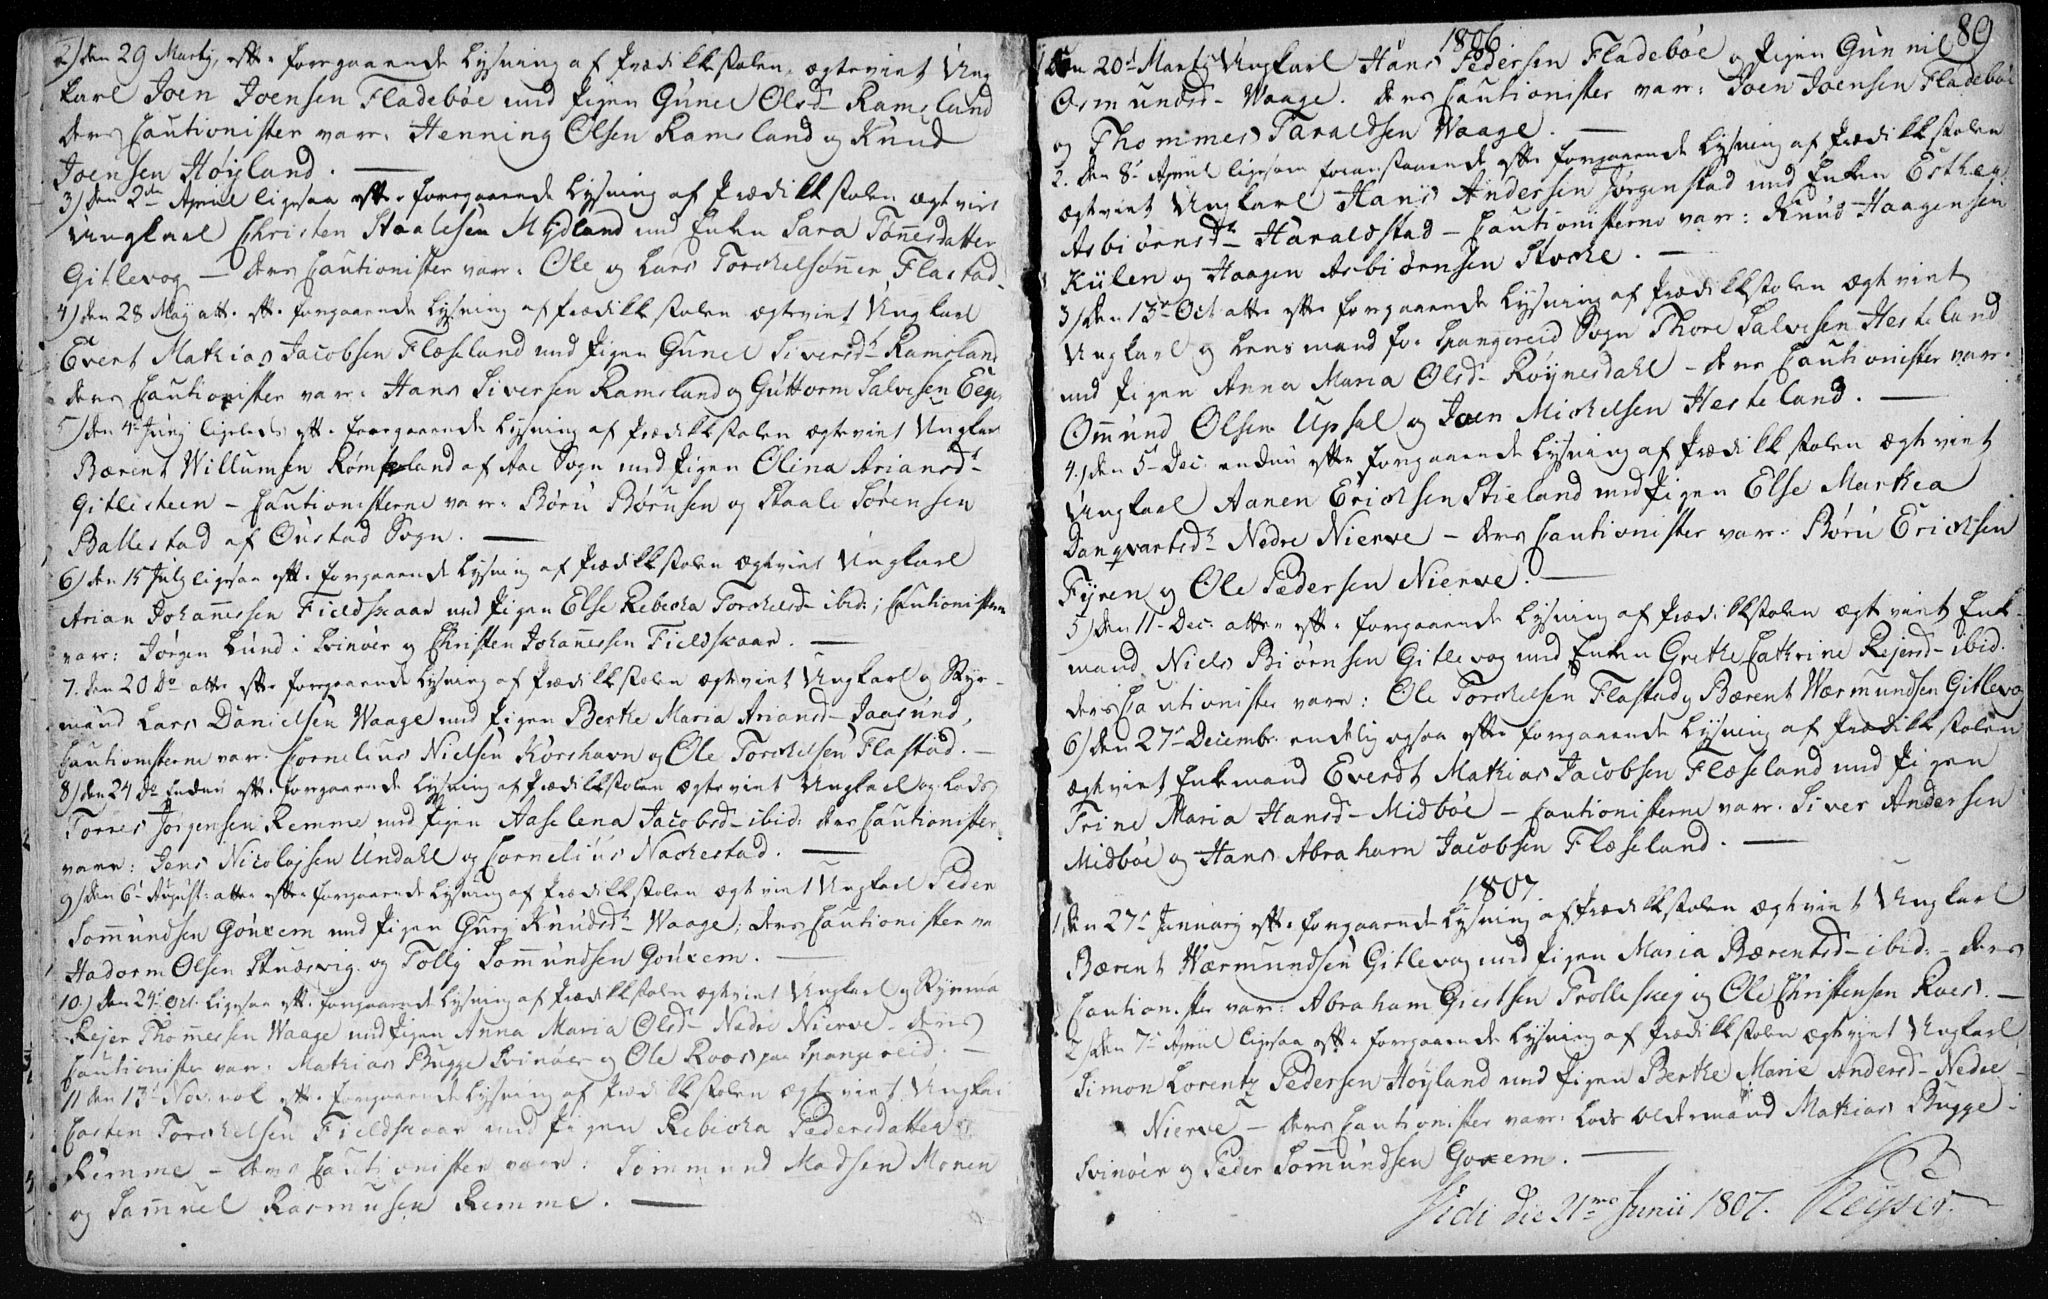 2) den 29 Martij, eft: foregaaende Lysning af Prædikkestolen, ægteviet Ung
karl Joen Joensen Fladebøe med Pigen Gunel Olsd- Ramsland
deres Cautionister var: Henning Olsen Ramsland og Knud
Joensen Høyland. —
3) den 2de April ligesaa eft: forgaaende Lysning af Prædikkestolen ægtviet
Ungkarl Christen Staalesen Mydland med Enken Sara Tønnesdatter
Gitlevog — deres Cautionister var: Ole og Lars Torkelsønner Flastad.
4) den 28 Maij att: eft: forgaaende Lysning af Prædikkestolen ægteviet Ungkarl
Evert Mathias Jacobsen Flæseland med Pigen Gunel Siversdr Ramsland
deres Cautionister var: Hans Siversen Ramsland og Guttorm Salvesen Eeg.
5) den 4de Junij ligeledes eft: forgaaende Lysning af Prædikkestolen ægteviet Ungkarl
Bærent Willumsen Rømesland af Aae Sogn med Pigen Olina Ariansdr
Gitlesteen — Cautionisterne var: Børu Børusen og Staale Sørensen
Ballestad af Øustad Sogn. —
6) den 15 Julij ligesaa eft: forgaaende Lysning af Prædikkestolen ægtviet Ungkarl
Arian Johannessen Fieldskaar med Pigen Else Rebecka Torkelsd- ibid:; Cautionisterne
var: Jørgen Lund i Svinøer og Christen Johannessen Fieldskaar. —
7. den 20 Do atter eft: forgaaende Lysning af Prædikkestolen ægtviet Ungkarl og Styr-
mand Lars Danielsen Waage med Pigen Berthe Maria Ariansd- Jaasund,
Cautionisterne var: Cornelius Nielsen Korshavn og Ole Torkelsen Flastad. —
8) den 24 Do Endnu eft: forgaaende Lysning af Prædikkestolen ægteviet Ungkarl og Lods
Torres Jørgensen Remme med Pigen Aaselena Jacobsd- ibid: deres Cautionister
varr: Jens Nicolajsen Undahl og Cornelius Nackestad. —
9) den 6te August: atter efter forgaaende Lysning af Prædikkestolen ægtviet Ungkarl Peder
Sommundsen Gouxem med Pigen Gurj Knudsdr Waage; deres Cautionister va
Hadorm Olsen Snuesvig og Tollj Sommundsen Gouxem. —
10.) den 24de Oct. ligesaa eft: forgaaende Lysning af Prædikkestolen ægtviet Ungkarl og Styrma
Rejer Thommessen Waage med Pigen Anna Maria Olsd- Nedre Nierve — deres
Cautionister var: Mathias Bugge Svinøer og Ole Roos paa Spangereid. —
11 den 13de Nov. eft: forgaaende Lysning af Prædikkestolen ægtviet Ungkar
Casten Torkelsen Fieldskaar med Pigen Rebecka Pedersdatter
Remme — deres Cautionister varr: Sommund Madsen Monen
og Samuel Rasmusen Remme. —
89
1806
1) den 20de Martij Ungkarl Hans Pedersen Fladebøe og Pigen Gunnil
Osmundsd- Waage. deres Cautionister var: Joen Joensen Fladebøe
og Thommes Taraldsen Waage. —
2. den 8de April ligesom foranstaaende eft: forgaaende Lysning af Prædikkestolen
ægteviet Ungkarl Hans Andersen Jørgenstad med Enken Esther
Asbiørnsdr Haraldstad — Cautionisterne var: Knud Haagensen
Kiilen og Haagen Asbiørnsen Stocke. —
3) den 13de Oct. atter eft: forgaaende Lysning af Prædikkestolen ægtviet
Ungkarl og Lensmand for Spangereid Sogn Thore Salvesen Hesteland
med Pigen Anna Maria Olsd- Røynesdahl — deres Cautionister var:
Omund Olsen Upsal og Joen Mickelsen Hesteland. —
4.) den 5te Dec: endnu efter forgaaende Lysning af Prædikkestolen ægtviet
Ungkarl Aanen Ericksen Stieland med Pigen Else Marthea
Danqvartsdr Nedre Nierve — deres Cautionister varr: Børu Ericksen
Fijren og Ole Pedersen Nierve. —
5) den 11te Dec: atter eft: forgaaende Lysning af Prædikkestolen ægtviet Enke-
mand Niels Biørnsen Gitlevog med Enken Grethe Cathrine Rejersd- ibid.
deres Cautionister varr: Ole Torkelsen Flastad og Bærent Wærmundsen Gitlevog
6) den 27de Decembr: endelig ogsaa efter forgaaende Lysning af Prædikkestolen
ægtviet Enkemand Everdt Mathias Jacobsen Flæseland med Pigen
Trine Maria Hansd- Midbøe — Cautionisterne varr: Siver Andersen
Midbøe og Hans Abraham Jacobsen Flæseland. —
1807
1, den 27de Januarij efter forgaaende Lysning af Prædikkestolen ægtviet Ungkarl
Bærent Wærmundsen Gitlevog med Pigen Maria Bærentsd- ibid: — deres
Cautionister var: Abraham Giertsen Trolleskeg og Ole Christensen Roes. —
2) den 7de April ligesaa eft: forgaaende Lysning af Prædikkestolen ægtviet Ungkarl
Simon Lorentz Pedersen Høyland med Pigen Berthe Marie Andersd- Nedre
Nierve — deres Cautionister varr: Lods Oldermand Mathias Bugge
Svinøer og Peder Sommundsen Goxem. —
Vidi die 21mo Junii 1807. Keyser.